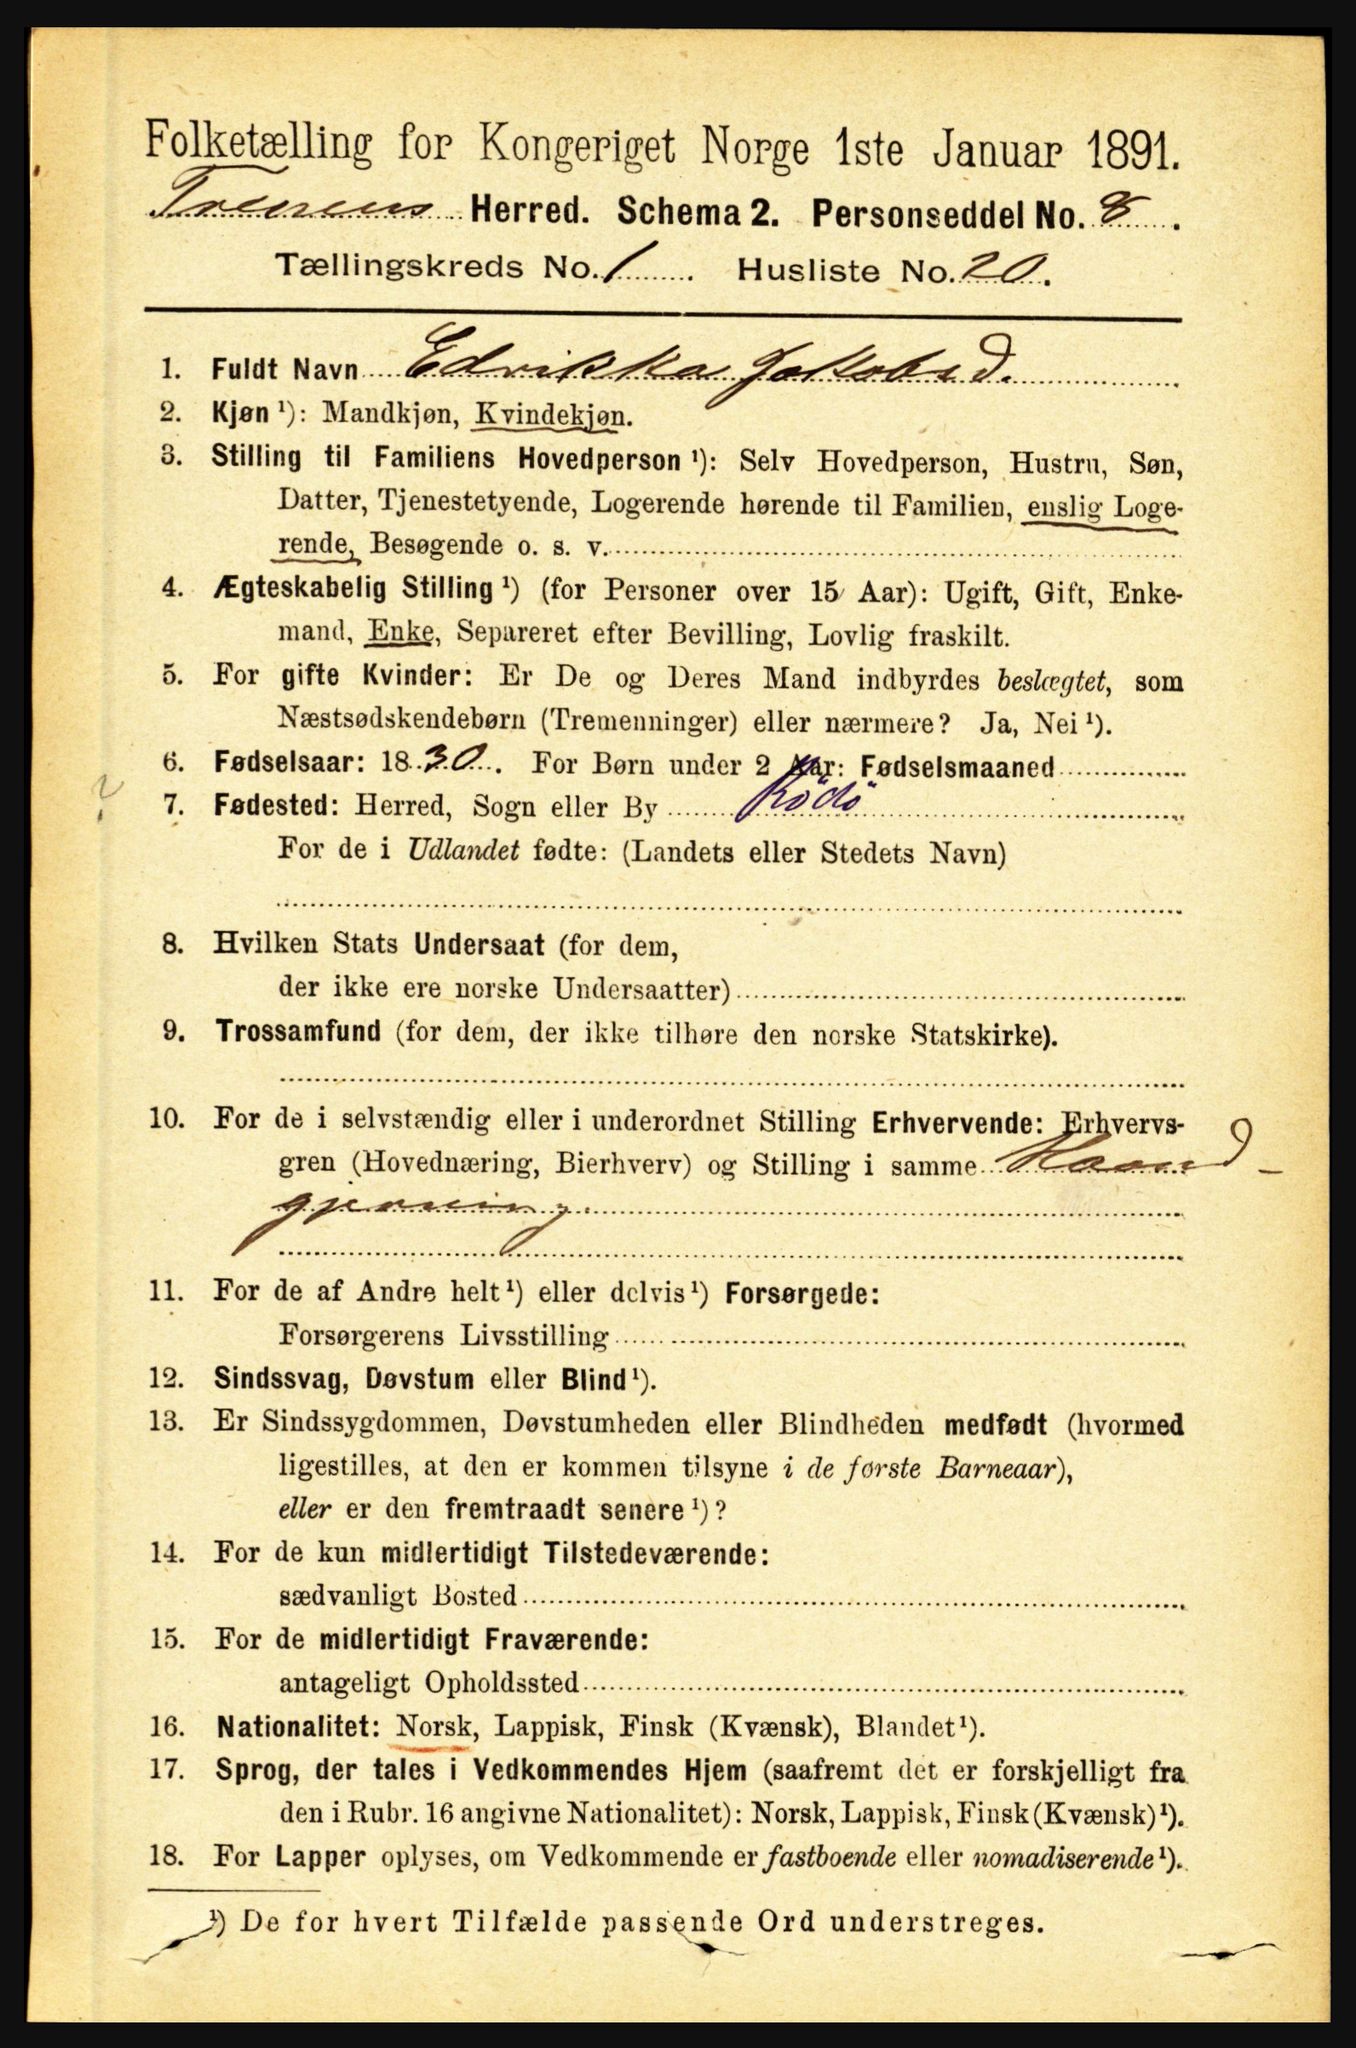 Folketælling for Kongeriget Norge 1ste Januar 1891.
Trænens Herred. Schema 2. Personseddel No. 8.
Tællingskreds No. 1. Husliste No. 20.
1. Fuldt Navn Edvikka Jakobsd.
2. Kjøn ¹): Mandkjøn, Kvindekjøn.
3. Stilling til Familiens Hovedperson ¹): Selv Hovedperson, Hustru, Søn,
Datter, Tjenestetyende, Logerende hørende til Familien, enslig Loge-
rende, Besøgende o. s. v.
4. Ægteskabelig Stilling ¹) (for Personer over 15 Aar): Ugift, Gift, Enke-
mand, Enke, Separeret efter Bevilling, Lovlig fraskilt.
5. For gifte Kvinder: Er De og Deres Mand indbyrdes beslægtet, som
Næstsødskendebørn (Tremenninger) eller nærmere? Ja, Nei ¹).
6. Fødselsaar: 1830. For Børn under 2 Aar: Fødselsmaaned
?
7. Fødested: Herred, Sogn eller By Rödö
For de i Udlandet fødte: (Landets eller Stedets Navn)
8. Hvilken Stats Undersaat (for dem,
der ikke ere norske Undersaatter)
9. Trossamfund (for dem, der ikke tilhøre den norske Statskirke).
10. For de i selvstændig eller i underordnet Stilling Erhvervende: Erhvervs-
gren (Hovednæring, Bierhverv) og Stilling i samme Haand-
gjerning.
11. For de af Andre helt ¹) eller delvis ¹) Forsørgede:
Forsørgerens Livsstilling
12. Sindssvag, Døvstum eller Blind ¹).
13. Er Sindssygdommen, Døvstumheden eller Blindheden medfødt (hvormed
ligestilles, at den er kommen tilsyne i de første Barneaar),
eller er den fremtraadt senere ¹)?
14. For de kun midlertidigt Tilstedeværende:
sædvanligt Bosted
15. For de midlertidigt Fraværende:
antageligt Opholdssted
16. Nationalitet: Norsk, Lappisk, Finsk (Kvænsk), Blandet ¹).
17. Sprog, der tales i Vedkommendes Hjem (saafremt det er forskjelligt fra
den i Rubr. 16 angivne Nationalitet): Norsk, Lappisk, Finsk (Kvænsk) ¹).
18. For Lapper oplyses, om Vedkommende er fastboende eller nomadiserende ¹).
¹) De for hvert Tilfælde passende Ord understreges.